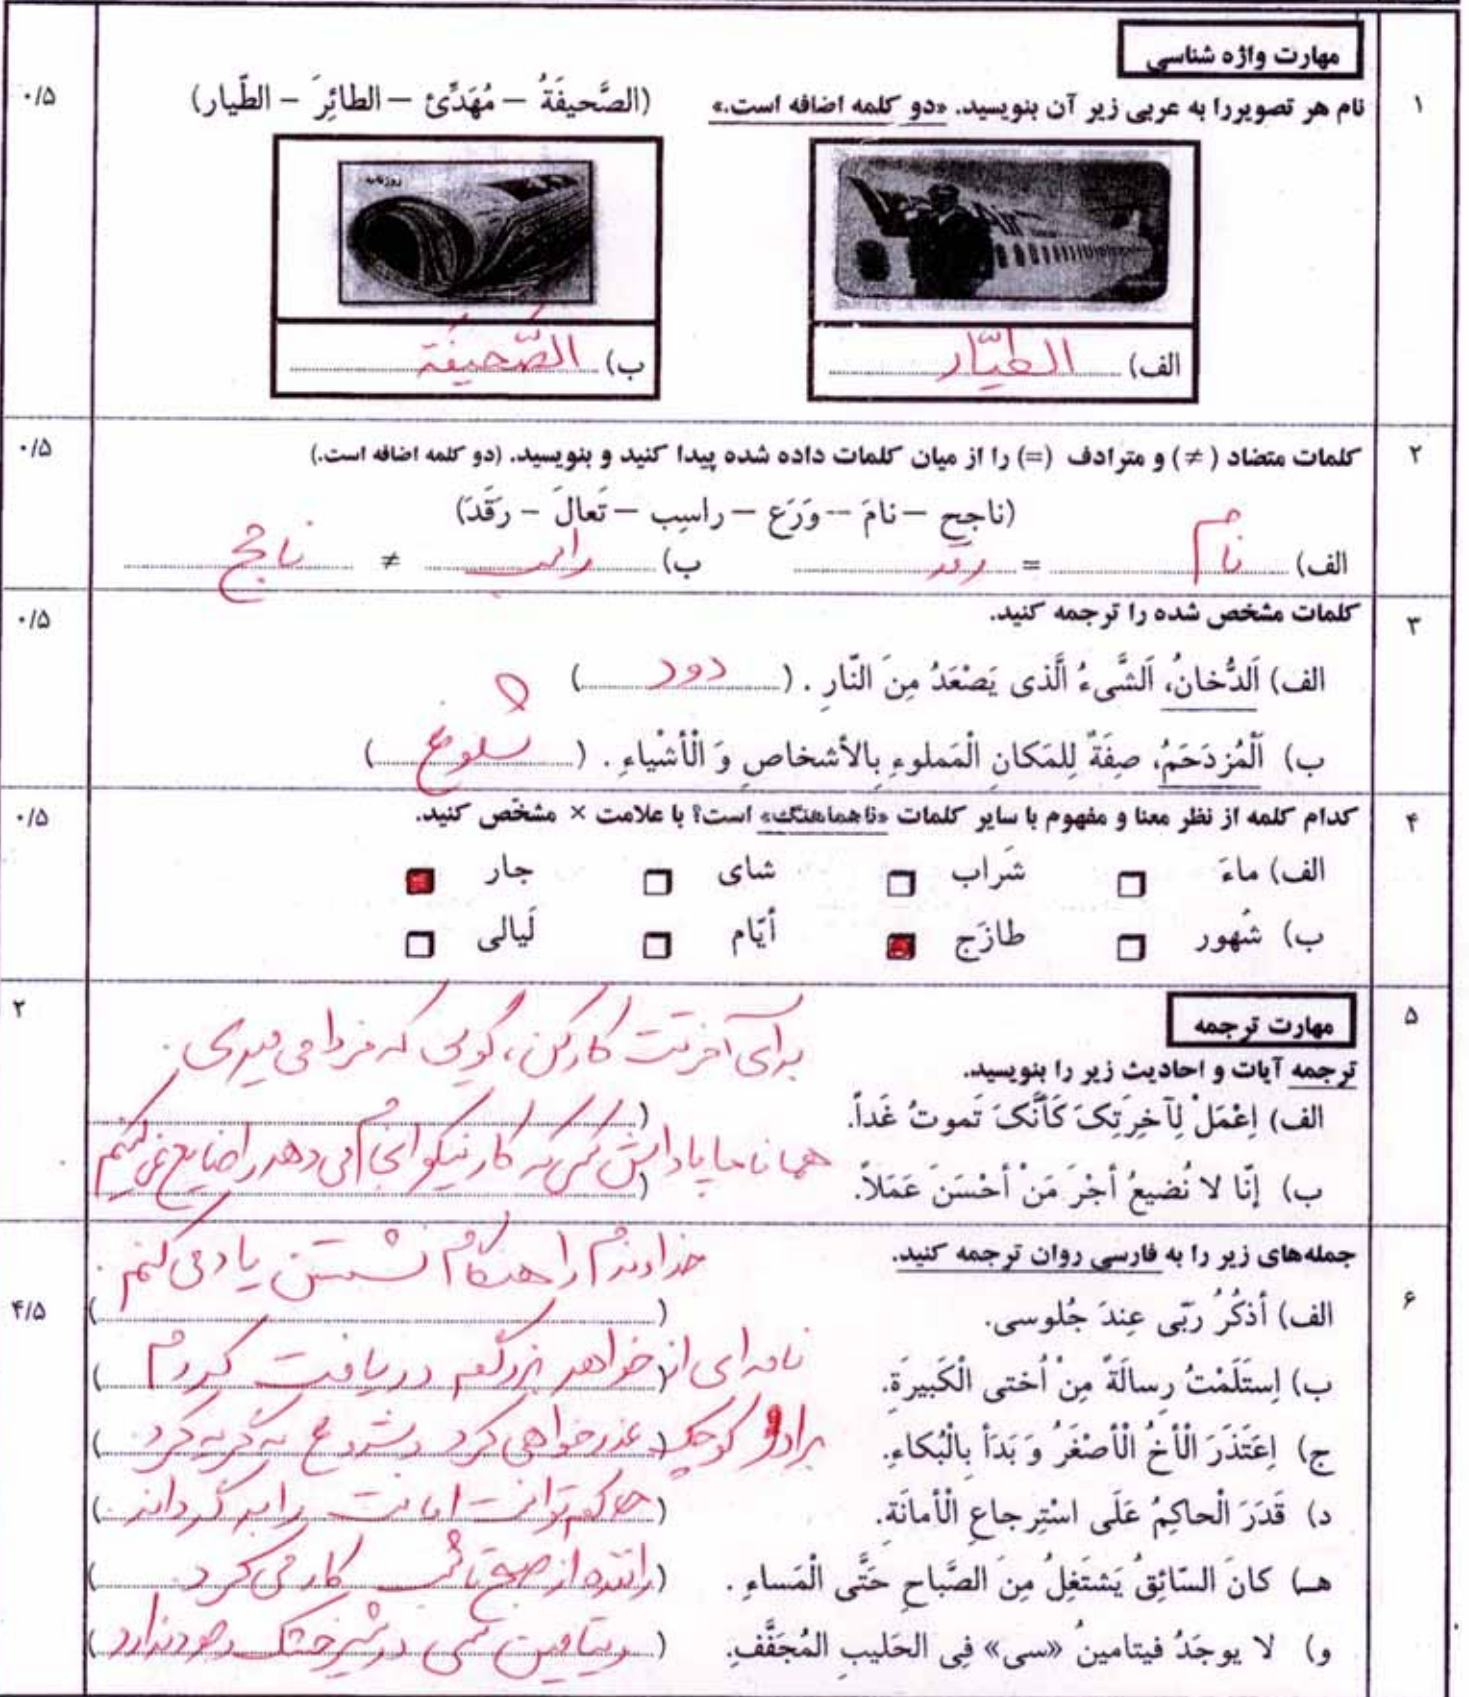 مهارت واژه شناسی
۱ نام هر تصویررا به عربی زیر آن بنویسید. «دو کلمه اضافه است.» (الصَّحیفَةُ – مُهَدِّئ – الطائِرَ – الطّیار) ۰/۵
روزنامه
الف) الطیّار ب) الصَّحیفَة
۲ کلمات متضاد (≠) و مترادف (=) را از میان کلمات داده شده پیدا کنید و بنویسید. (دو کلمه اضافه است.) ۰/۵
(ناجِح – نامَ – وَرَع – راسِب – تَعالَ – رَقَدَ)
الف) نام = رقد ب) راسب ≠ ناجح
۳ کلمات مشخص شده را ترجمه کنید. ۰/۵
الف) اَلدُّخانُ، اَلشَّیءُ الَّذی یَصْعَدُ مِنَ النّارِ . (دود)
ب) اَلْمُزدَحَمُ، صِفَةٌ لِلمَکانِ الْمَملوءِ بِالأشخاصِ وَ الْأشْیاءِ . (شلوغ)
۴ کدام کلمه از نظر معنا و مفهوم با سایر کلمات «ناهماهنگ» است؟ با علامت × مشخّص کنید. ۰/۵
الف) ماءَ شَراب شای جار
ب) شُهور طازَج أیّام لَیالی
۵ مهارت ترجمه ۲
برای آخرتت کار کن، گویی که فردا می میری.
ترجمه آیات و احادیث زیر را بنویسید.
الف) اِعْمَلْ لِآخِرَتِکَ کَأَنَّکَ تَموتُ غَداً. (
همانا ما پاداش کسی که کار نیکو انجام می دهد را ضایع نمی کنیم
ب) إنّا لا نُضیعُ أجْرَ مَنْ أحْسَنَ عَمَلاً. (
۶ جمله‌های زیر را به فارسی روان ترجمه کنید. ۴/۵
خداوندم را هنگام نشستن یاد می کنم.
الف) أذکُرُ رَبّی عِندَ جُلوسی. ( )
ب) اِستَلَمْتُ رِسالَةً مِنْ اُختی الْکَبیرَةِ. نامه ای از (خواهر بزرگم دریافت کردم)
ج) اِعتَذَرَ الْأخُ الْأصْغَرُ وَ بَدَأ بِالْبُکاءِ. برادر کوچک (عذرخواهی کرد و شروع به گریه کرد.)
د) قَدَرَ الْحاکِمُ عَلَی اسْتِرجاعِ الْأمانَةِ. (حاکم توانست امانت را برگرداند.)
هـ) کانَ السّائِقُ یَشتَغِلُ مِنَ الصَّباحِ حَتَّی الْمَساءِ . (راننده از صبح تا شب کار می کرد.)
و) لا یوجَدُ فیتامینُ «سی» فِی الحَلیبِ المُجَفَّفِ. (ویتامین سی در شیر خشک وجود ندارد)